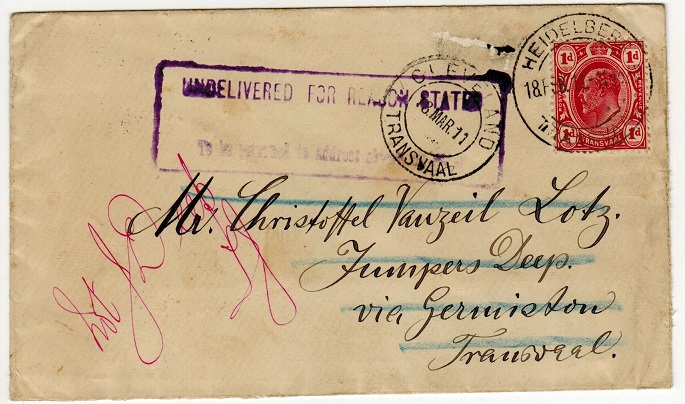 UNDELIVERED FOR REASON STATED
To be returned to address
CLEVELAND
18 MAR. 11
TRANSVAAL
HEIDELBERG
18 FEB
1d 1d
1d 1d
TRANSVAAL
Mr. Christoffel Vanzeil Lotz.
Jumpers Deep.
via Germiston
Transvaal.
not